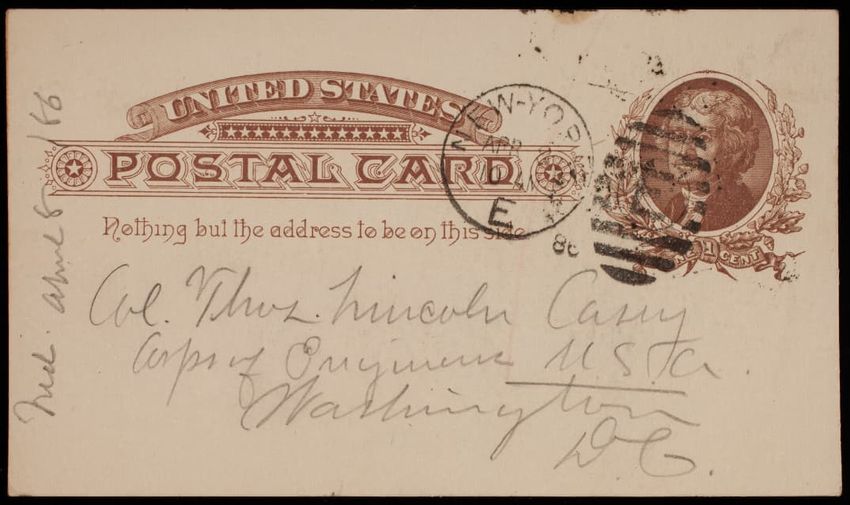 UNITED STATES
POSTAL CARD
Nothing but the address to be on this side
NEW-YORK
APR
10 AM
E
86
ONE 1 CENT
Col. Thos. Lincoln Casey
Corps of Engineers U.S.A.
Washington
D.C.
April 8 /86